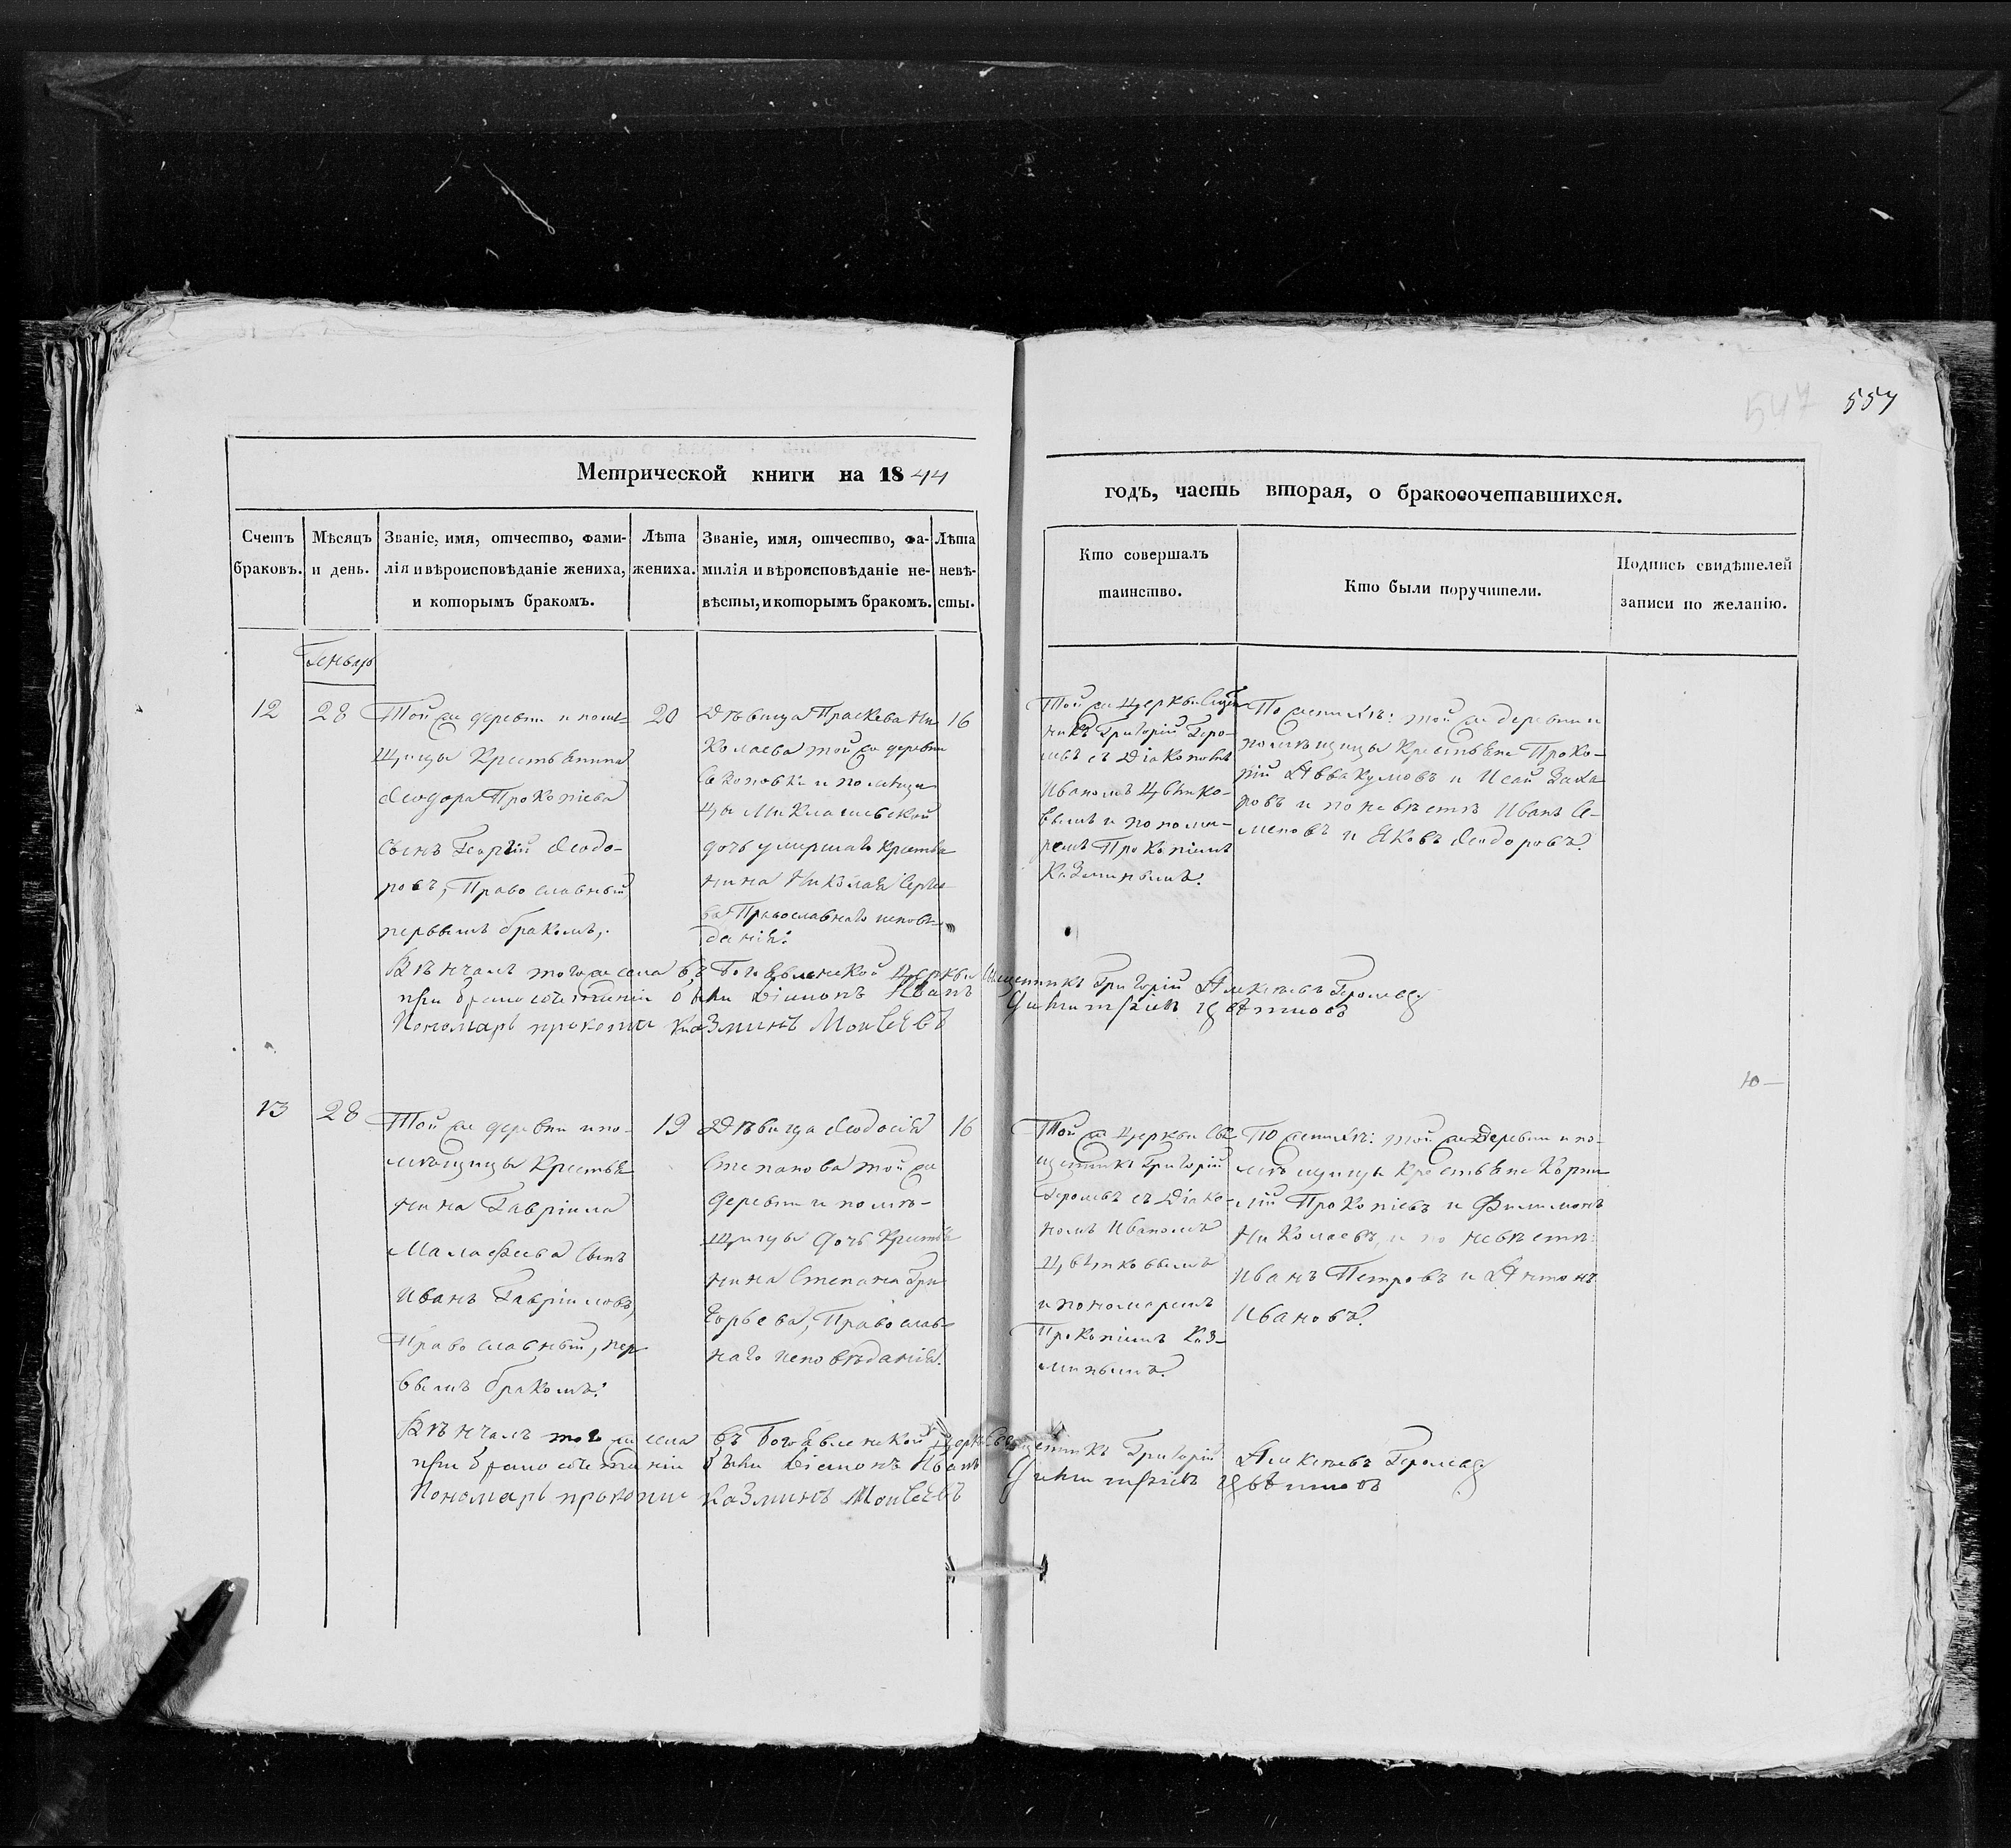 547 557
Метрической книги на 1844
годъ, часть вторая, о бракосочетавшихся.
Счетъ браковъ.
Мѣсяцъ и день.
Званіе, имя, отчество, фами-
лія и вѣроисповѣданіе жениха,
и которымъ бракомъ.
Лѣта
жениха.
Званіе, имя, отчество, фа-
милія и вѣроисповѣданіе не-
вѣсты, и которымъ бракомъ.
Лѣта
невѣ-
сты.
Кто совершалъ
таинство.
Кто были поручители.
Подпись свидѣтелей
записи по желанію.
Генварь
12
28
Той же деревни и помѣ-
щицы Крестьянина
Ѳеодора Прокопіева
Сынъ Георгій Ѳеодо-
ровъ, Православный
первымъ бракомъ,
20
Дѣвица Праскева Ни
колаева той же деревни
и помѣщи
цы Миклашевской
дочь умершаго крестья
нина Николая Сергѣе
ва Православнаго исповѣ-
данія.
16
Той же Церкви Свящ
никъ Григорій Геро-
мевъ съ Діакономъ
Иваномъ Цвѣтко-
вымъ и понома-
ремъ Прокопіемъ
Казминымъ.
По женихѣ: той же деревни и
помѣщицы Крестьяне Проко-
пій Аввакумовъ и Исай Заха
ровъ и по невѣстѣ Иванъ Се-
меновъ и Яковъ Ѳеодоровъ.
Вѣнчалъ тогоже села въ Богоявленской Церкви Священникъ Григорій Алексѣевъ
при бракосочетаніи были Діаконъ Иванъ Цвѣтковъ
Пономарь прокопий Казминъ Моисеевъ
13
28
Той же деревни и по-
мѣщицы Крестья
нина Гавріила
Малафѣева Сынъ
Иванъ Гавріиловъ,
Православный, пер
вымъ бракомъ.
19
Дѣвица Ѳеодосія
Степанова той же
деревни и помѣ-
щицы дочь Крестья
нина Степана Гри
горьева, Православ-
наго исповѣданія.
16
Той же Церкви Свя
щенникъ Григорій
Геромевъ съ Діако-
номъ Иваномъ
Цвѣтковымъ
и пономаремъ
Прокопіемъ Каз-
минымъ.
По женихѣ: той же деревни и по-
мѣщицы Крестьяне Корни
лій Прокопіевъ и Филимонъ
Николаевъ, и по невѣстѣ:
Иванъ Петровъ и Антонъ
Ивановъ.
Ю—
Вѣнчалъ того же села въ Богоявленской Церкви Священникъ Григорій Алексѣевъ
при бракосочетаніи были Діаконъ Иванъ Цвѣтковъ
Пономарь прокопий Казминъ Моисеевъ